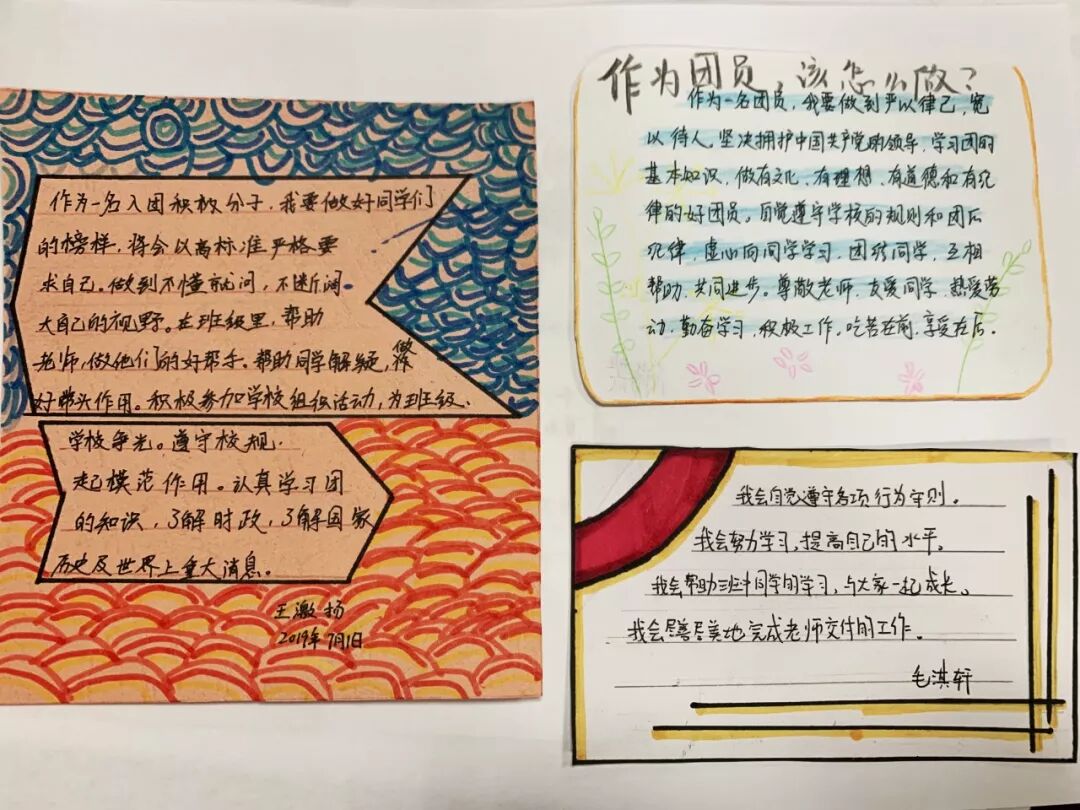 作为一名入团积极分子，我要做好同学们
的榜样，将会以高标准严格要
求自己。做到不懂就问，不断阔
大自己的视野。在班级里，帮助
老师，做他们的好帮手。帮助同学解疑，做
好带头作用。积极参加学校组织活动，为班级、
学校争光。遵守校规，
起模范作用。认真学习团
的知识，了解时政，了解国家
历史及世界上重大消息。
王激扬
2019年7月1日
作为团员，该怎么做？
作为一名团员，我要做到严以律己，宽
以待人，坚决拥护中国共产党的领导，学习团的
基本知识，做有文化、有理想、有道德和有纪
律的好团员，自觉遵守学校的规则和团后
纪律，虚心向同学学习，团结同学，互相
帮助，共同进步。尊敬老师，友爱同学，热爱劳
动，勤奋学习，积极工作，吃苦在前，享受在后。
我会自觉遵守各项行为守则。
我会努力学习，提高自己的水平。
我会帮助班中同学的学习，与大家一起成长。
我会尽善尽美地完成老师交付的工作。
毛淇轩